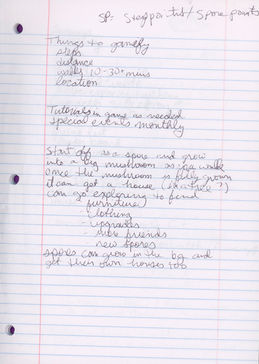 SP: Support / Spore points
Things to gamify
steps
distance
walks 10-30+ mins
location
Tutorials in game as needed
special events monthly
Start off as a spore and grow
into a big mushroom as you walk
once the mushroom is fully grown
it can get a house (in a tree?)
can go exploring to find
furniture
- clothing
- upgrades
- more friends
- new spores
spores can grow in the bg and
get their own houses too